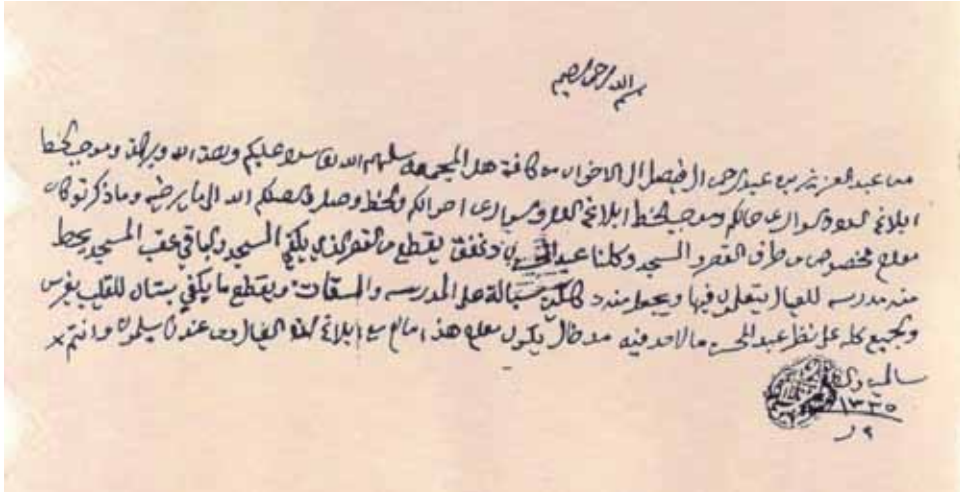 بسم الله الرحمن الرحيم
من عبد العزيز بن عبد الرحمن ال فيصل الى الاخوان من كافة هل المجمعه سلمهم الله تعا سلام عليكم ورحمة الله وبركاته وموجب الخط
ابلاغ السلام والسوال عن حالكم وموجب الخط ابلاغ السلام والسوال عن احوالكم والخط وصل وصلكم الله الى ما يرضيه وما ذكرتو كان
معلوم مخصوص من طرف القصر و المسجد وكلنا عبد المحسن يقطع من القصر الذي يكفي المسجد والباقي عقب المسجد يحط
منه مدرسه للعيال يتعلمون فيها ويحط منه دكاكين سبالة على المدرسه والمسقات ويقطع ما يكفي بستان للقليب يغرس
والجميع كله على نظر عبد المحسن ما لاحد فيه مدخال يكون معلوم هذا ما لزم مع ابلاغ السلام العيال ومن عندنا يسلمون وانتم
سالمين والسلام
١٣٣٥
ر ٢